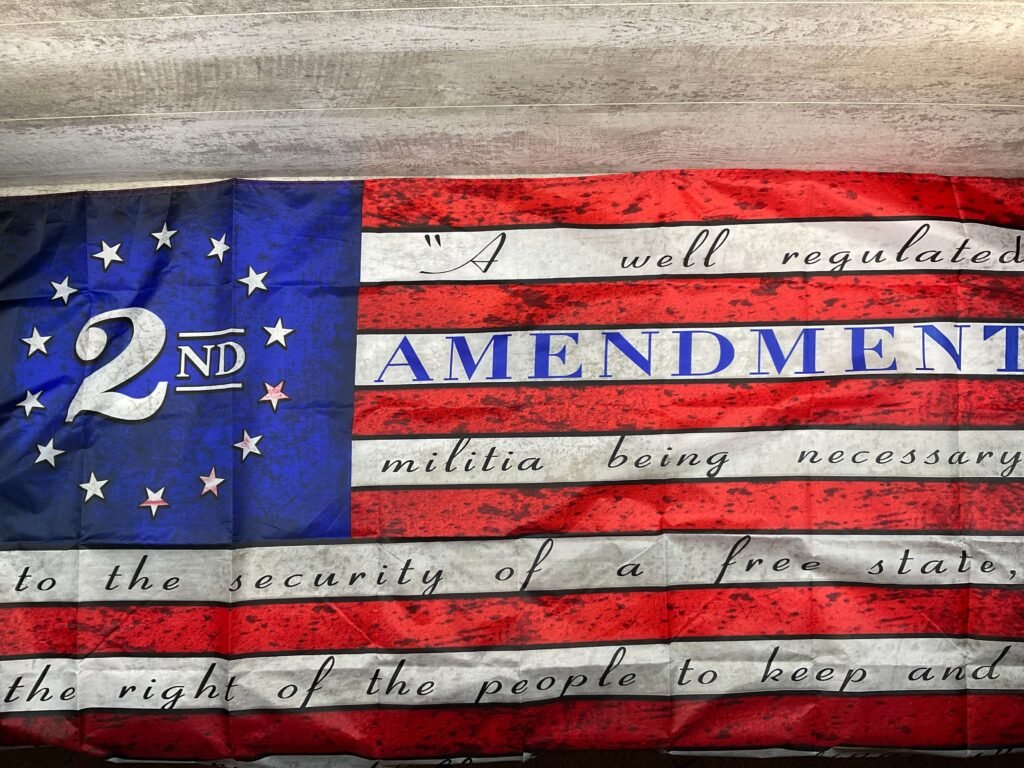 2ND
"A well regulated
AMENDMENT
militia being necessary
to the security of a free state,
the right of the people to keep and